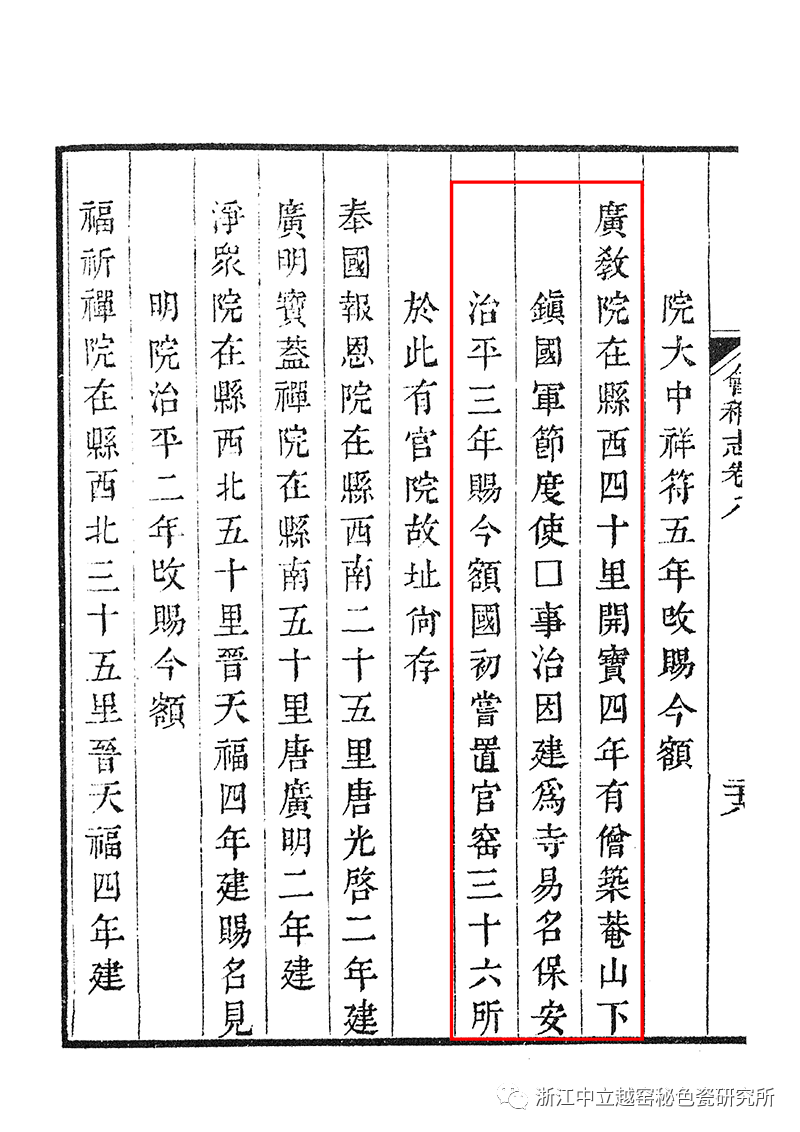 會稽志卷八
院大中祥符五年改賜今額
廣教院在縣西四十里開寶四年有僧築菴山下
鎮國軍節度使囗事治因建爲寺易名保安
治平三年賜今額國初嘗置官窑三十六所
於此有官院故址尙存
奉國報恩院在縣西南二十五里唐光啓二年建
廣明寶蓋禪院在縣南五十里唐廣明二年建
淨眾院在縣西北五十里晉天福四年建賜名見
明院治平二年改賜今額
福祈禪院在縣西北三十五里晉天福四年建
浙江中立越窑秘色瓷研究所